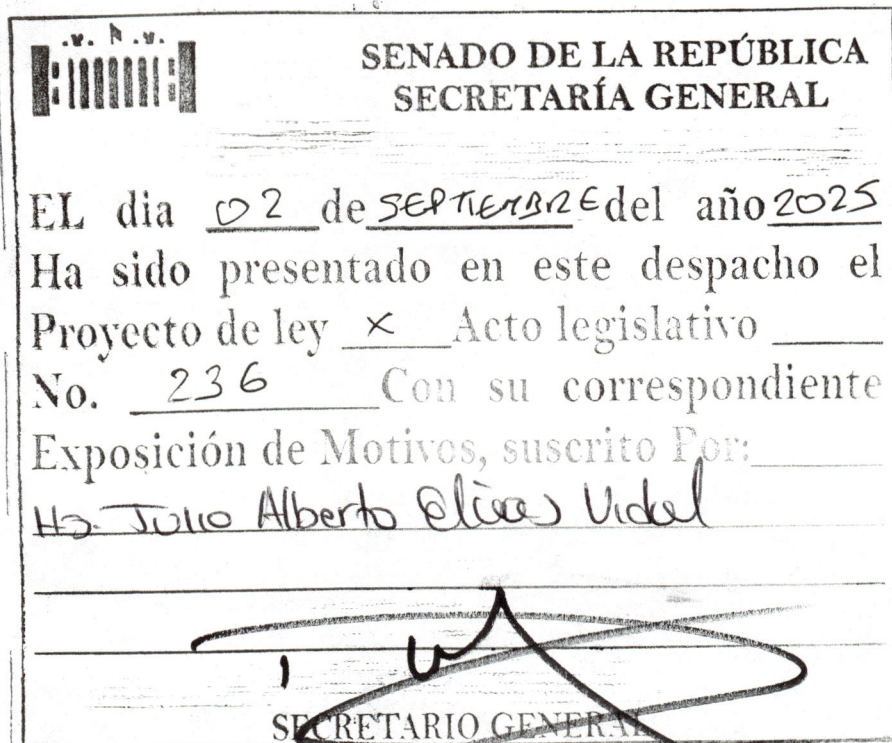 SENADO DE LA REPÚBLICA
SECRETARÍA GENERAL
EL dia 02 de SEPTIEMBRE del año 2025
Ha sido presentado en este despacho el
Proyecto de ley X Acto legislativo
No. 236 Con su correspondiente
Exposición de Motivos, suscrito Por:
Julio Alberto Elías Vidal
SECRETARIO GENERAL